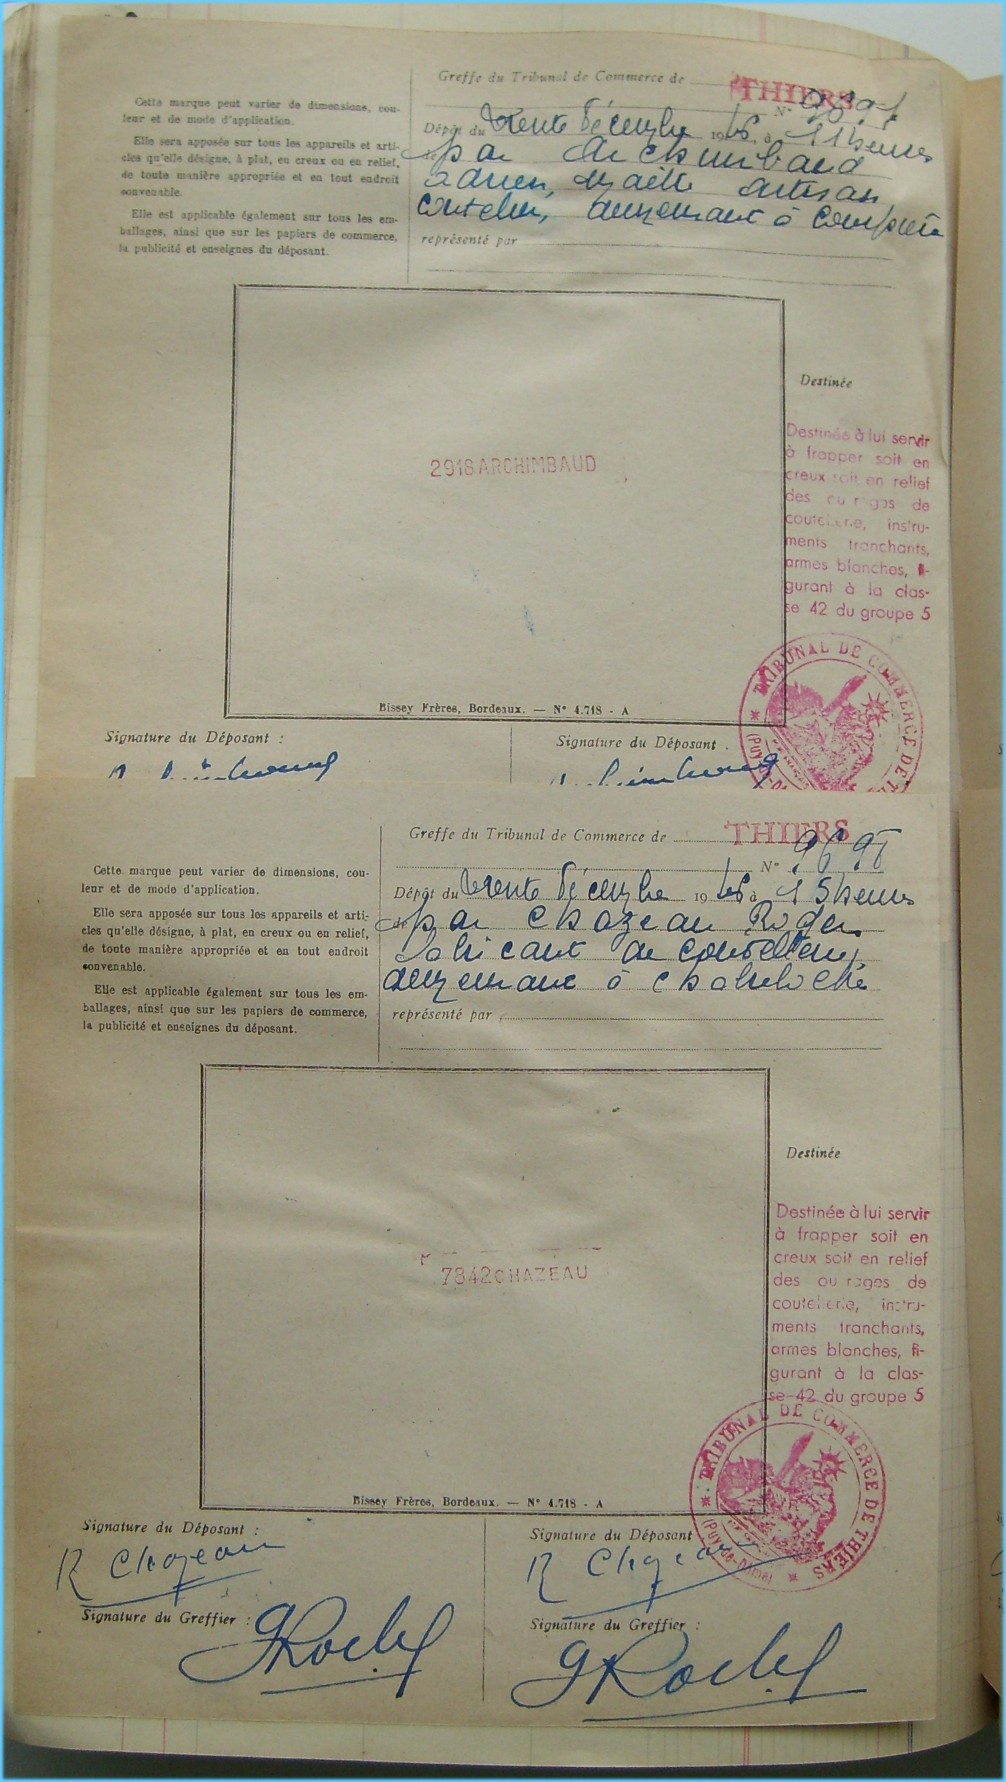 Greffe du Tribunal de Commerce de THIERS
Cette marque peut varier de dimensions, cou-
leur et de mode d'application.
Elle sera apposée sur tous les appareils et arti-
cles qu'elle désigne, à plat, en creux ou en relief,
de toute manière appropriée et en tout endroit
convenable.
Elle est applicable également sur tous les em-
ballages, ainsi que sur les papiers de commerce,
la publicité et enseignes du déposant.
N°
Dépôt du trente Décembre 1946 à 11 heures
par Archimbaud
Adrien, artisan
coutelier, demeurant à
représenté par
2916 ARCHIMBAUD
Destinée
Destinée à lui servir
à frapper soit en
creux soit en relief
des ou rages de
coutellerie, instru-
ments tranchants,
armes blanches, fi-
gurant à la clas-
se 42 du groupe 5
TRIBUNAL DE COMMERCE DE
Bissey Frères, Bordeaux. — N° 4.718 - A
Signature du Déposant :
Signature du Déposant
Greffe du Tribunal de Commerce de THIERS
Cette marque peut varier de dimensions, cou-
leur et de mode d'application.
Elle sera apposée sur tous les appareils et arti-
cles qu'elle désigne, à plat, en creux ou en relief,
de toute manière appropriée et en tout endroit
convenable.
Elle est applicable également sur tous les em-
ballages, ainsi que sur les papiers de commerce,
la publicité et enseignes du déposant.
N° 9698
Dépôt du trente Décembre 1946 à 15 heures
par Chazeau Roger
fabricant de coutellerie,
demeurant à
représenté par
7342 CHAZEAU
Destinée
Destinée à lui servir
à frapper soit en
creux soit en relief
des ou rages de
coutellerie, instru-
ments tranchants,
armes blanches, fi-
gurant à la clas-
se 42 du groupe 5
TRIBUNAL DE COMMERCE DE THIERS
(Puy-de-Dôme)
Bissey Frères, Bordeaux. — N° 4.718 - A
Signature du Déposant :
R Chazeau
Signature du Déposant
R Chazeau
Signature du Greffier :
Signature du Greffier :